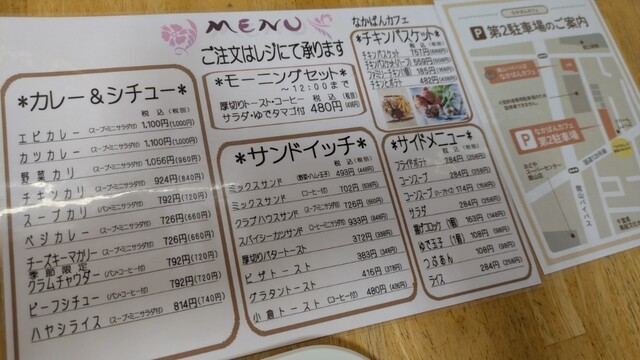 MENU
ご注文はレジにて承ります
*カレー&シチュー*
税込(税別)
エビカレー (スープ・ミニサラダ付) 1,100円(1,000円)
カツカレー (スープ・ミニサラダ付) 1,100円(1,000円)
野菜カリー (スープ・ミニサラダ付) 1,056円(960円)
チキンカリー (スープ・ミニサラダ付) 924円(840円)
スープカリー (パン・ミニサラダ付) 792円(720円)
ベジカレー (スープ・ミニサラダ付) 726円(660円)
チーズキーマカリー (スープ・ミニサラダ付) 726円(660円)
季節限定
クラムチャウダー (パン・コーヒー付) 792円(720円)
ビーフシチュー (パン・コーヒー付) 792円(720円)
ハヤシライス (スープ・ミニサラダ付) 814円(740円)
*モーニングセット*
~12:00まで
厚切りトースト・コーヒー 税込(税別)
サラダ・ゆでタマゴ付 480円
*サンドイッチ*
税込(税別)
ミックスサンド (野菜・ハム・玉子) 493円
ミックスサンド (コーヒー付) 702円
クラブハウスサンド (スープ・ミニサラダ付) 726円(660円)
スパイシーカツサンド (コーヒー・ミニサラダ付) 933円
厚切りバタートースト 372円
ピザトースト 383円
グラタントースト 416円
小倉トースト (コーヒー付) 480円
なかぱんカフェ
*チキンバスケット*
税込(税別)
チキンバスケット 757円
チキンバスケット(ハーフ) 559円
ファミリーチキン(1個) 185円
チキンとポテト 482円
*サイドメニュー*
税込(税別)
フライドポテト 284円
コーンスープ 284円
コーンスープ 114円
サラダ 284円
揚げコロッケ(1個) 163円
ゆで玉子(1個) 108円
つぶあん 108円
ライス 284円
なかぱんカフェ
P 第2駐車場のご案内
なかぱんカフェ
なかぱんカフェ
第2駐車場
館山バイパス